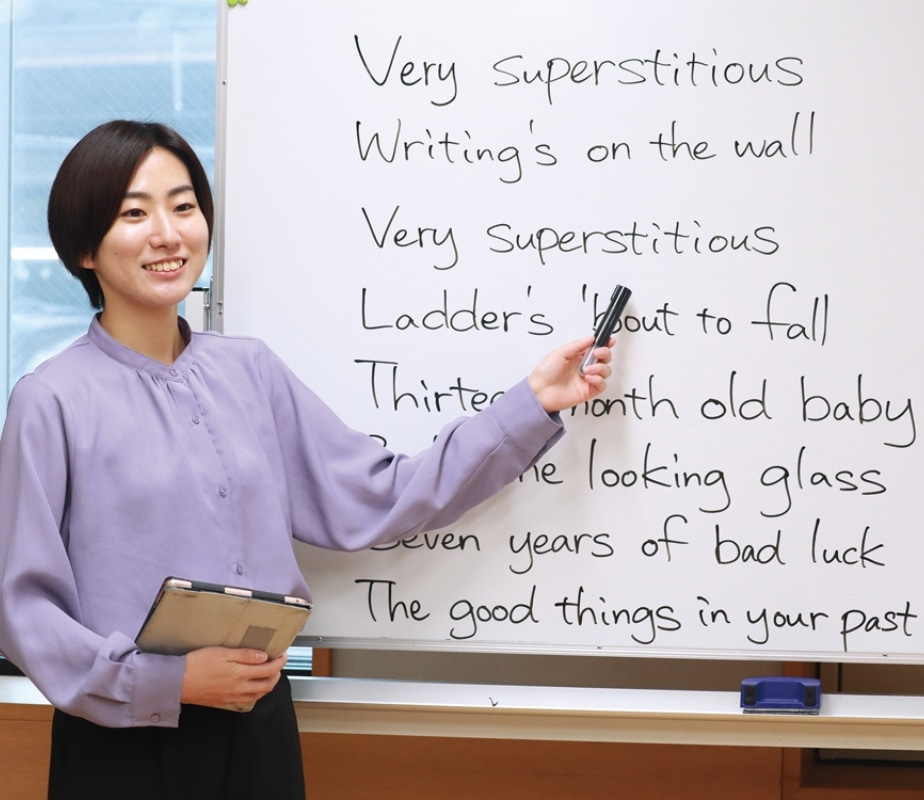 Very superstitious
Writing's on the wall
Very superstitious
Ladder's 'bout to fall
month old baby
looking glass
Seven years of bad luck
The good things in your past